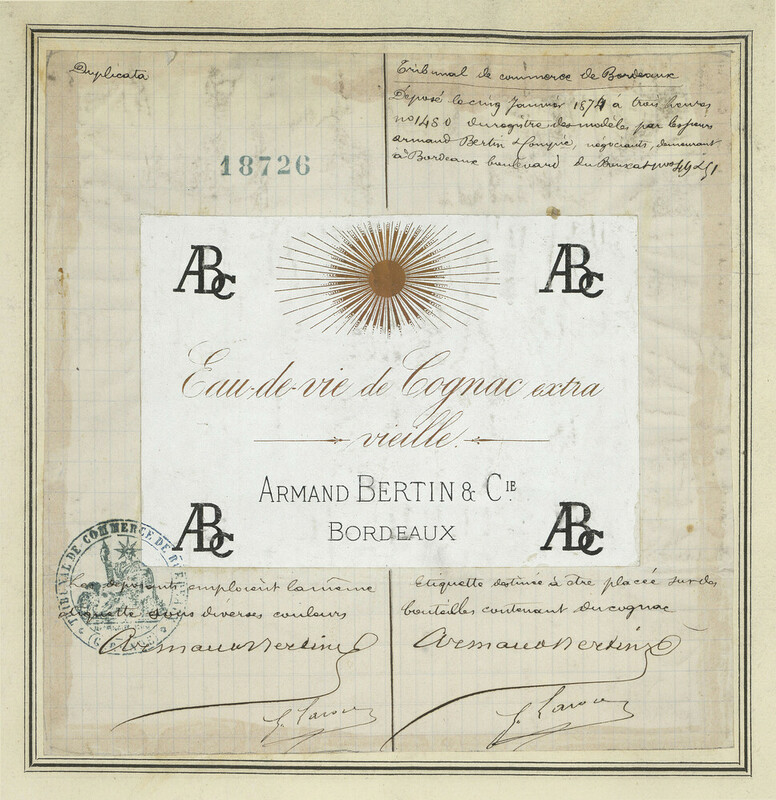 Duplicata
Tribunal de commerce de Bordeaux
Déposé le cinq Janvier 1874 à trois heures
no 1480 du registre des modèles par les sieurs
Armand Bertin & Compie, négociants, demeurant
à Bordeaux boulevard du Bouscat nos 49 & 51
18726
ABC
ABC
Eau-de-vie de Cognac extra
vieille.
ARMAND BERTIN & CIE
BORDEAUX
ABC
ABC
TRIBUNAL DE COMMERCE DE
Les déposants emploient la même
étiquette sous diverses couleurs
Armand Bertin
Etiquette destinée à être placée sur des
bouteilles contenant du cognac
Armand Bertin